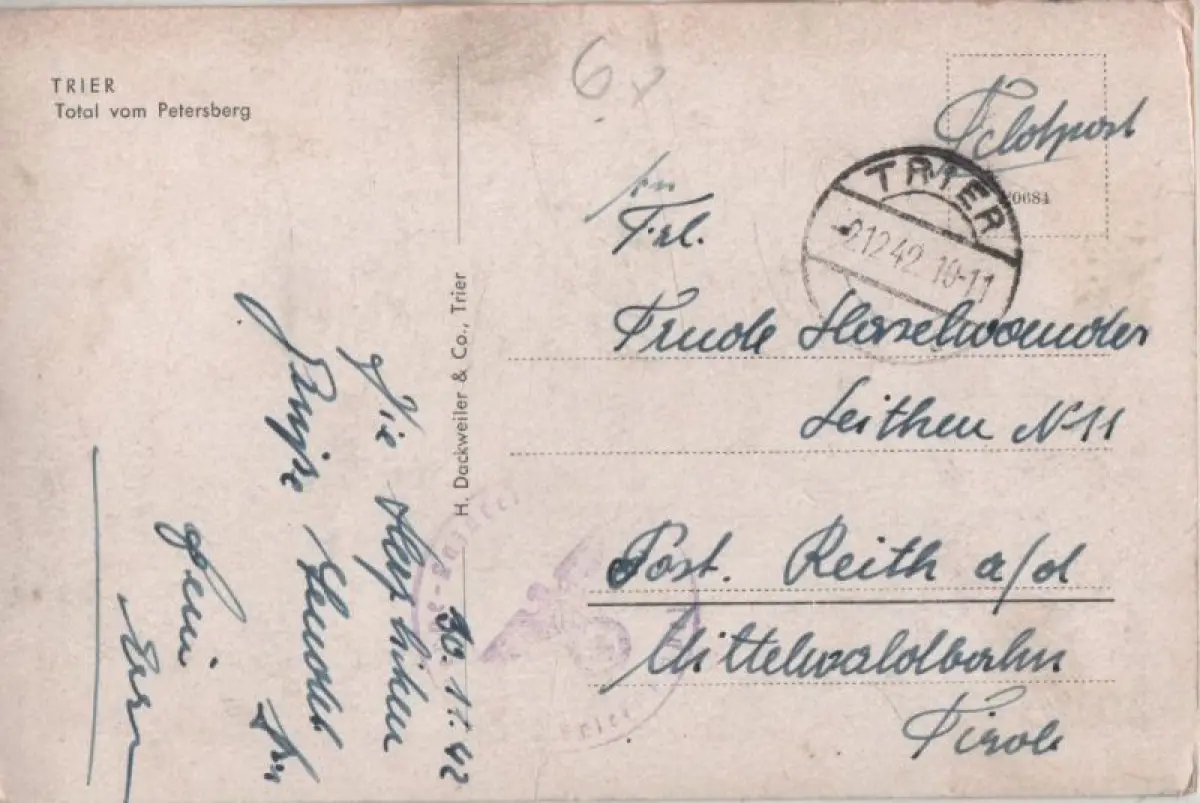 TRIER
Total vom Petersberg
6
Feldpost
20684
TRIER
-2.12.42.10-11
Frl.
Trude Haselwander
Leithen N 11
Post. Reith a/d
Mittelwaldbahn
Tirol
H. Dackweiler & Co., Trier
30.11.42
Die
Grüße sendet Dir